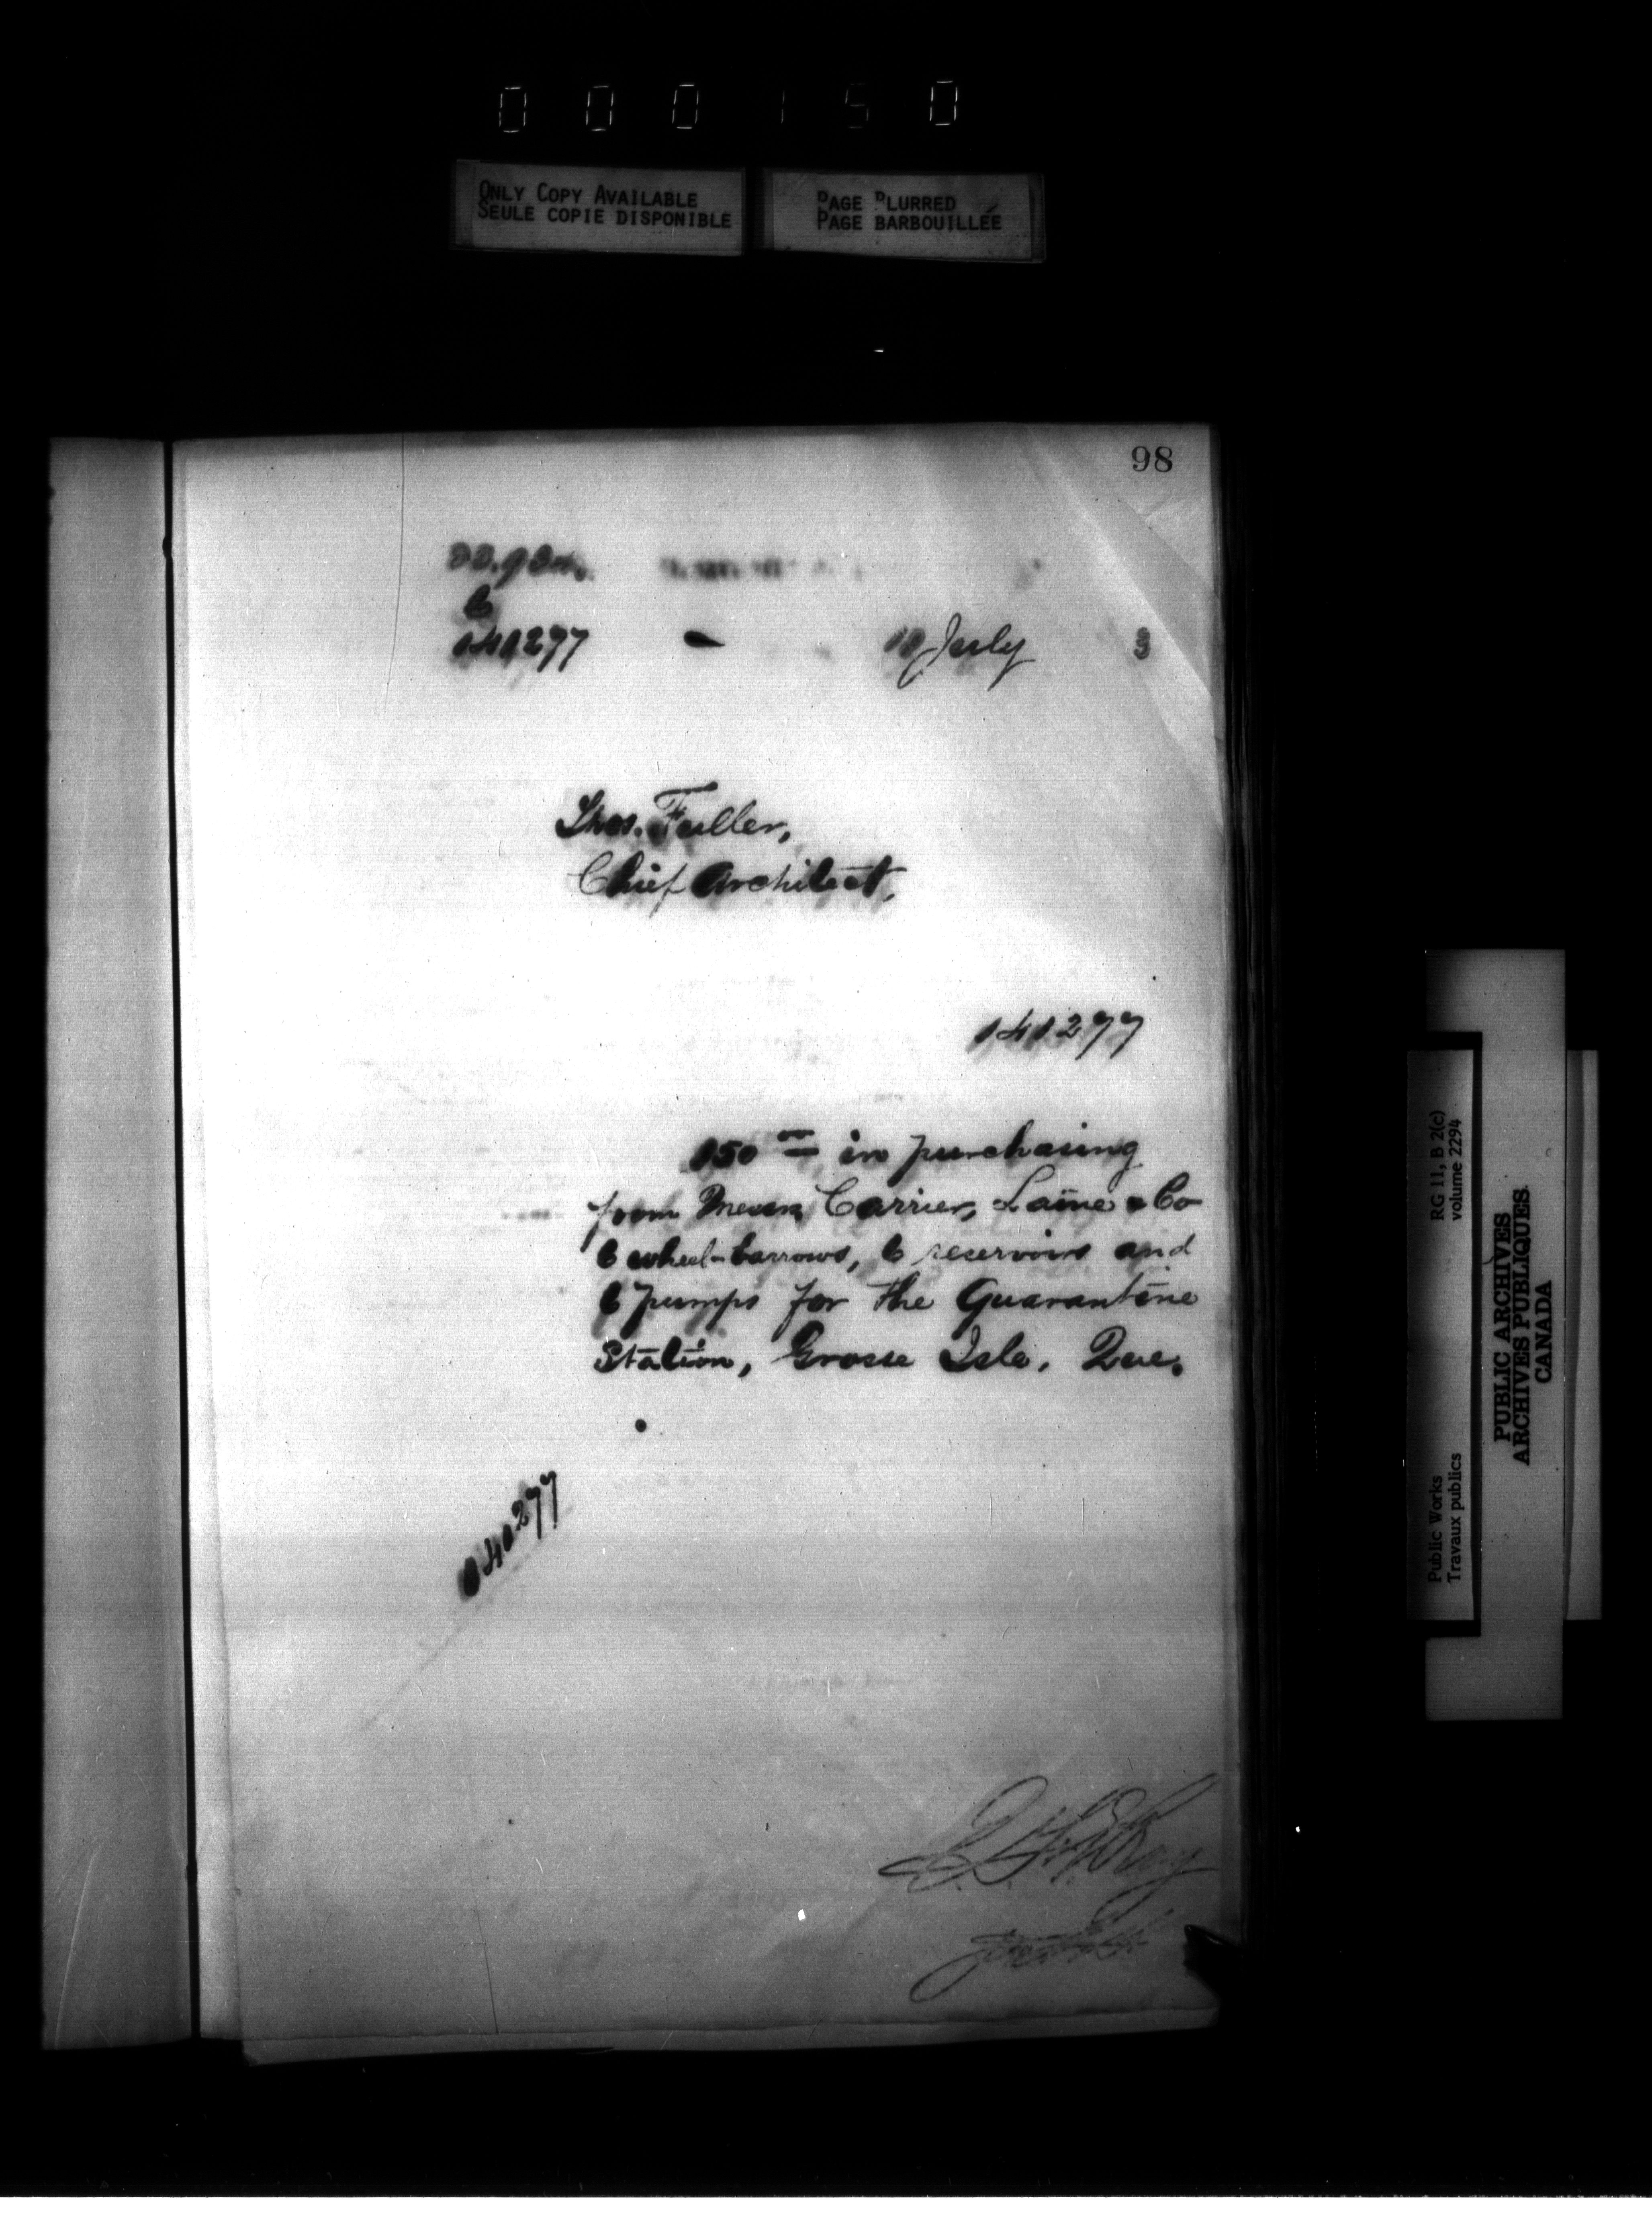 000150
ONLY COPY AVAILABLE
SEULE COPIE DISPONIBLE
PAGE BLURRED
PAGE BARBOUILLÉE
98
6
141277
10 July 3
Thos. Fuller,
Chief Architect,
141277
150 00 in purchasing
from Messrs Carrier, Laine & Co
6 wheel-barrows, 6 reservoirs and
6 pumps for the Quarantine
Station, Grosse Isle, Que.
141277
RG 11, B 2(c)
volume 2294
Public Works
Travaux publics
PUBLIC ARCHIVES
ARCHIVES PUBLIQUES
CANADA